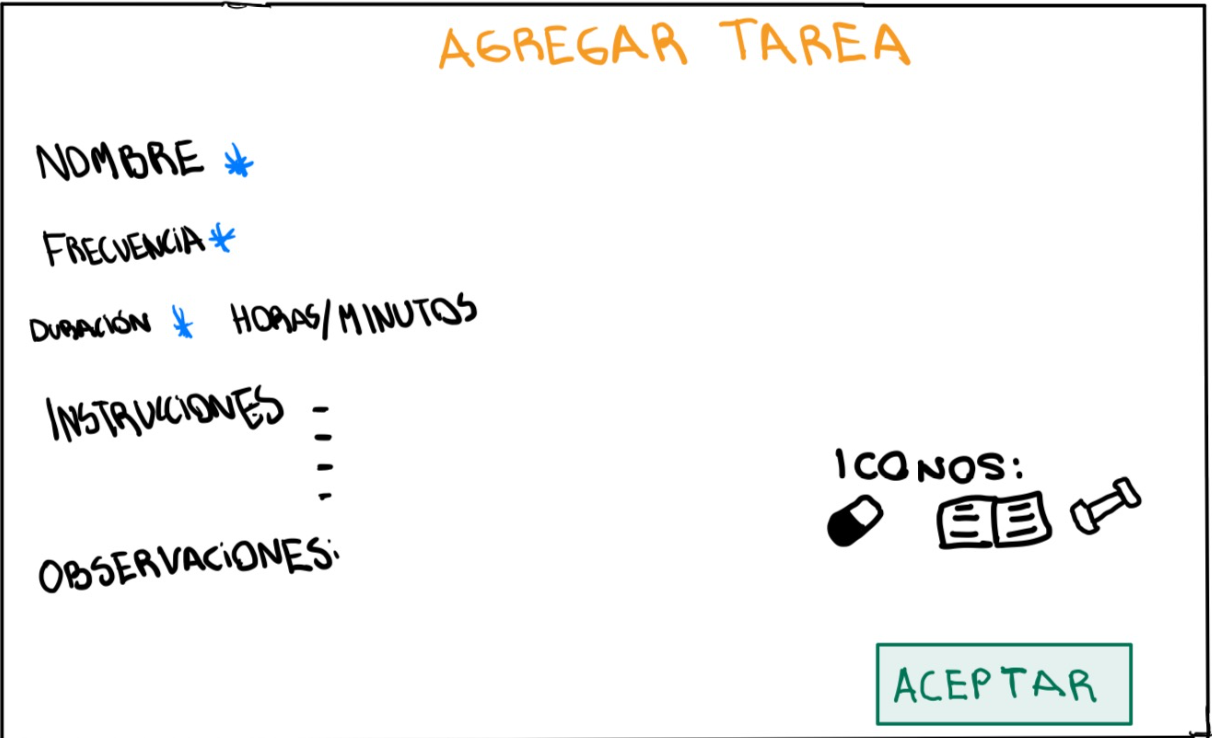 AGREGAR TAREA
NOMBRE *
FRECUENCIA *
DURACIÓN * HORAS/MINUTOS
INSTRUCCIONES -
-
-
-
ICONOS:
OBSERVACIONES:
ACEPTAR